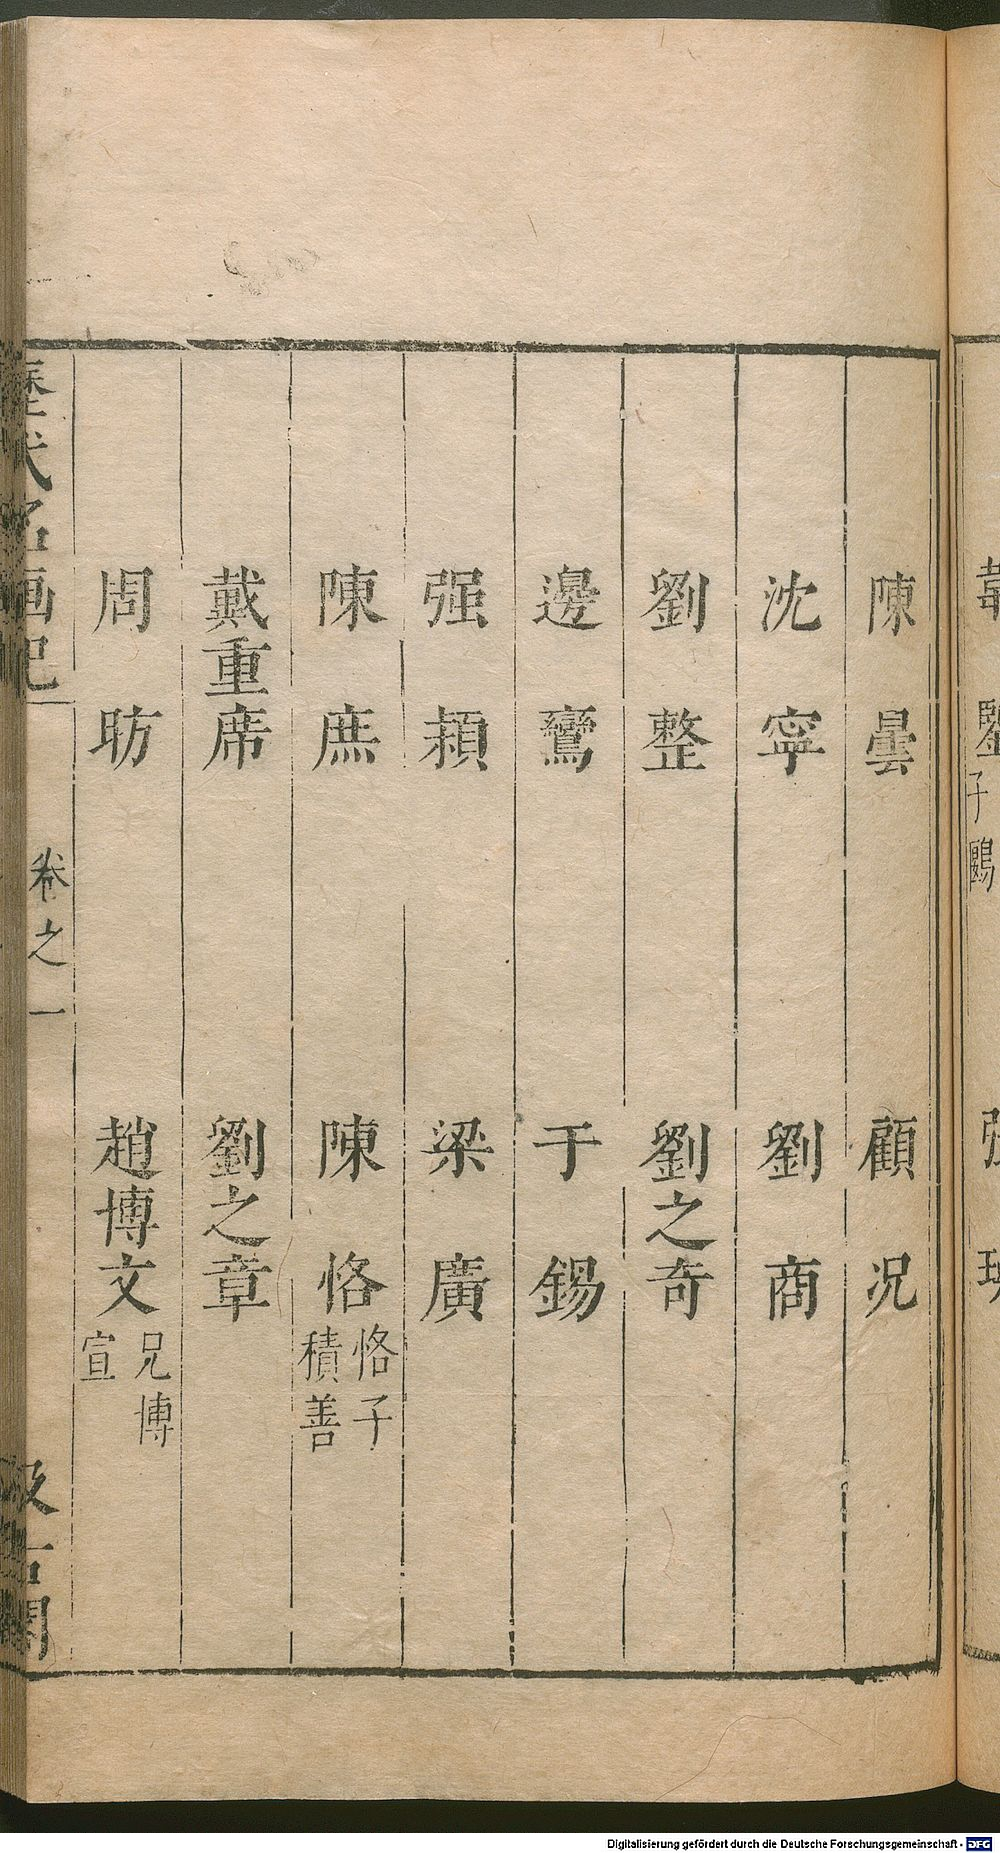 陳曇 顧况
沈寧 劉商
劉整 劉之奇
邊鸞 于錫
强頴 梁廣
陳庶 陳恪 恪子積善
戴重席 劉之章
周昉 趙博文 兄博宣
歷代名画記 卷之一 汲古閣
Digitalisierung gefördert durch die Deutsche Forschungsgemeinschaft - DFG